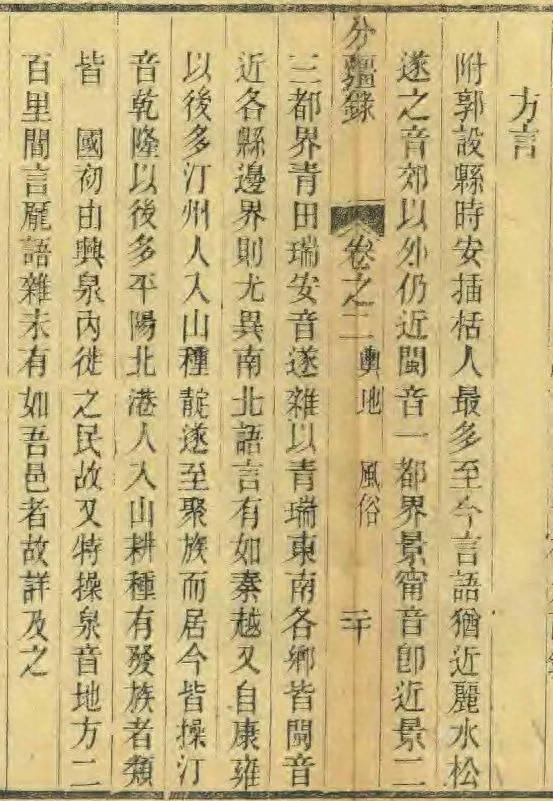 方言
附郭設縣時安插栝人最多至今言語猶近麗水松
遂之音郊以外仍近閩音一都界景甯音卽近景二
分疆錄 卷之二 輿地 風俗 二十
三都界青田瑞安音遂雜以青瑞東南各鄉皆閩音
近各縣邊界則尤異南北語言有如秦越又自康雍
以後多汀州人入山種靛遂至聚族而居今皆操汀
音乾隆以後多平陽北港人入山耕種有發族者類
皆 國初由興泉內徙之民故又特操泉音地方二
百里間言龐語雜未有如吾邑者故詳及之